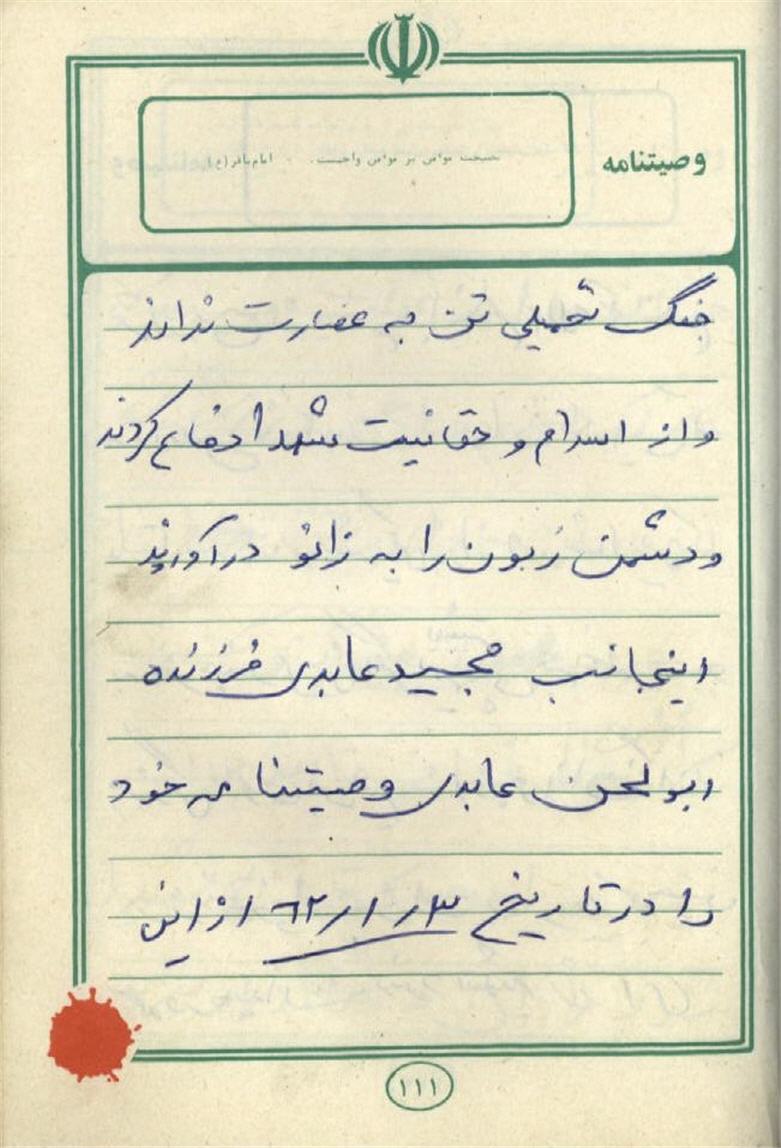 وصیتنامه
نصیحت مؤمن بر مؤمن واجبست. امام باقر (ع)
جنگ تحمیلی تن به حقارت ندادند
و از اسلام و حقانیت شهدا دفاع کردند
و دشمن زبون را به زانو درآورند
اینجانب مجید عابدی فرزنده
ابولحسن عابدی وصیتنامه خود
را در تاریخ ۶۲/۱/۳ از این
۱۱۱